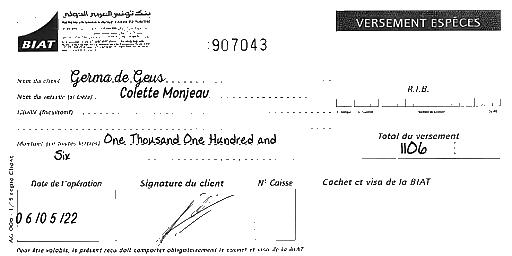 بنك تونس العربي الدولي
BIAT
VERSEMENT ESPÈCES
907043
Nom du client Germa de Geus
Nom du remettant (si tiers) Colette Monjeau
R.I.B.
Libellé (facultatif)
Montant (en toutes lettres) One Thousand One Hundred and
Six
Total du versement
1106
Date de l'opération Signature du client N° Caisse Cachet et visa de la BIAT
06/05/22
Pour être valable, le présent reçu doit comporter obligatoirement le cachet et visa de la BIAT